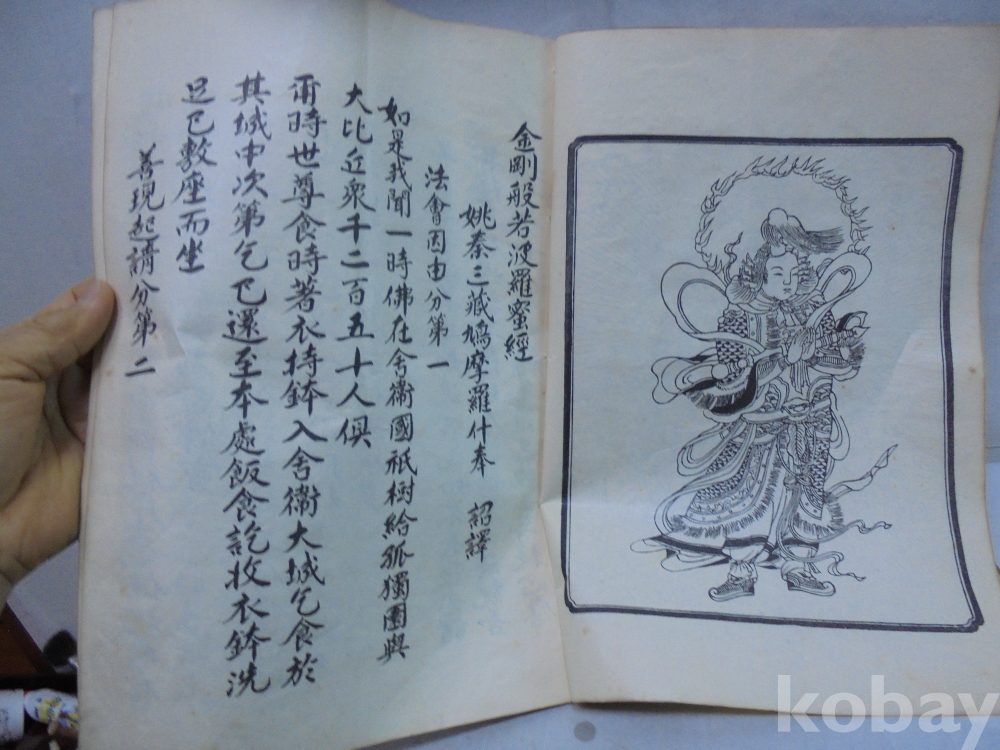 金剛般若波羅蜜經
姚秦三藏鳩摩羅什奉 詔譯
法會因由分第一
如是我聞一時佛在舍衞國祇樹給孤獨園與
大比丘衆千二百五十人俱
甭時世尊食時著衣持鉢入舍衞大城乞食於
其城中次第乞已還至本處飯食訖收衣鉢洗
足已敷座而坐
善現起請分第二
kobay